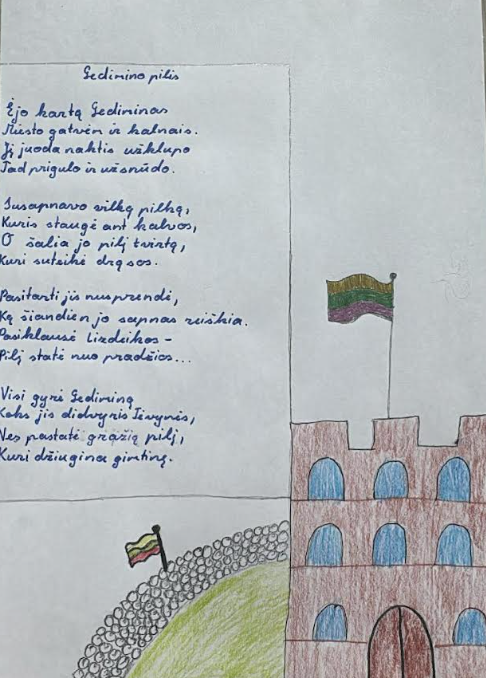 Gedimino pilis
Ėjo kartą Gediminas
Miesto gatvėm ir kalnais.
Jį juoda naktis užklupo
Tad prigulo ir užsnūdo.
Susapnavo vilką pilką,
Kuris staugė ant kalvos,
O šalia jo pilį tvirtą,
Kuri suteikė drąsos.
Pasitarti jis nusprendė,
Ką šiandien jo sapnas reiškia.
Pasiklausė Lizdeikos -
Pilį statė nuo pradžios...
Visi gyrė Gediminą
Koks jis didvyris Tėvynės,
Nes pastatė gražią pilį,
Kuri džiugina gimtinę.